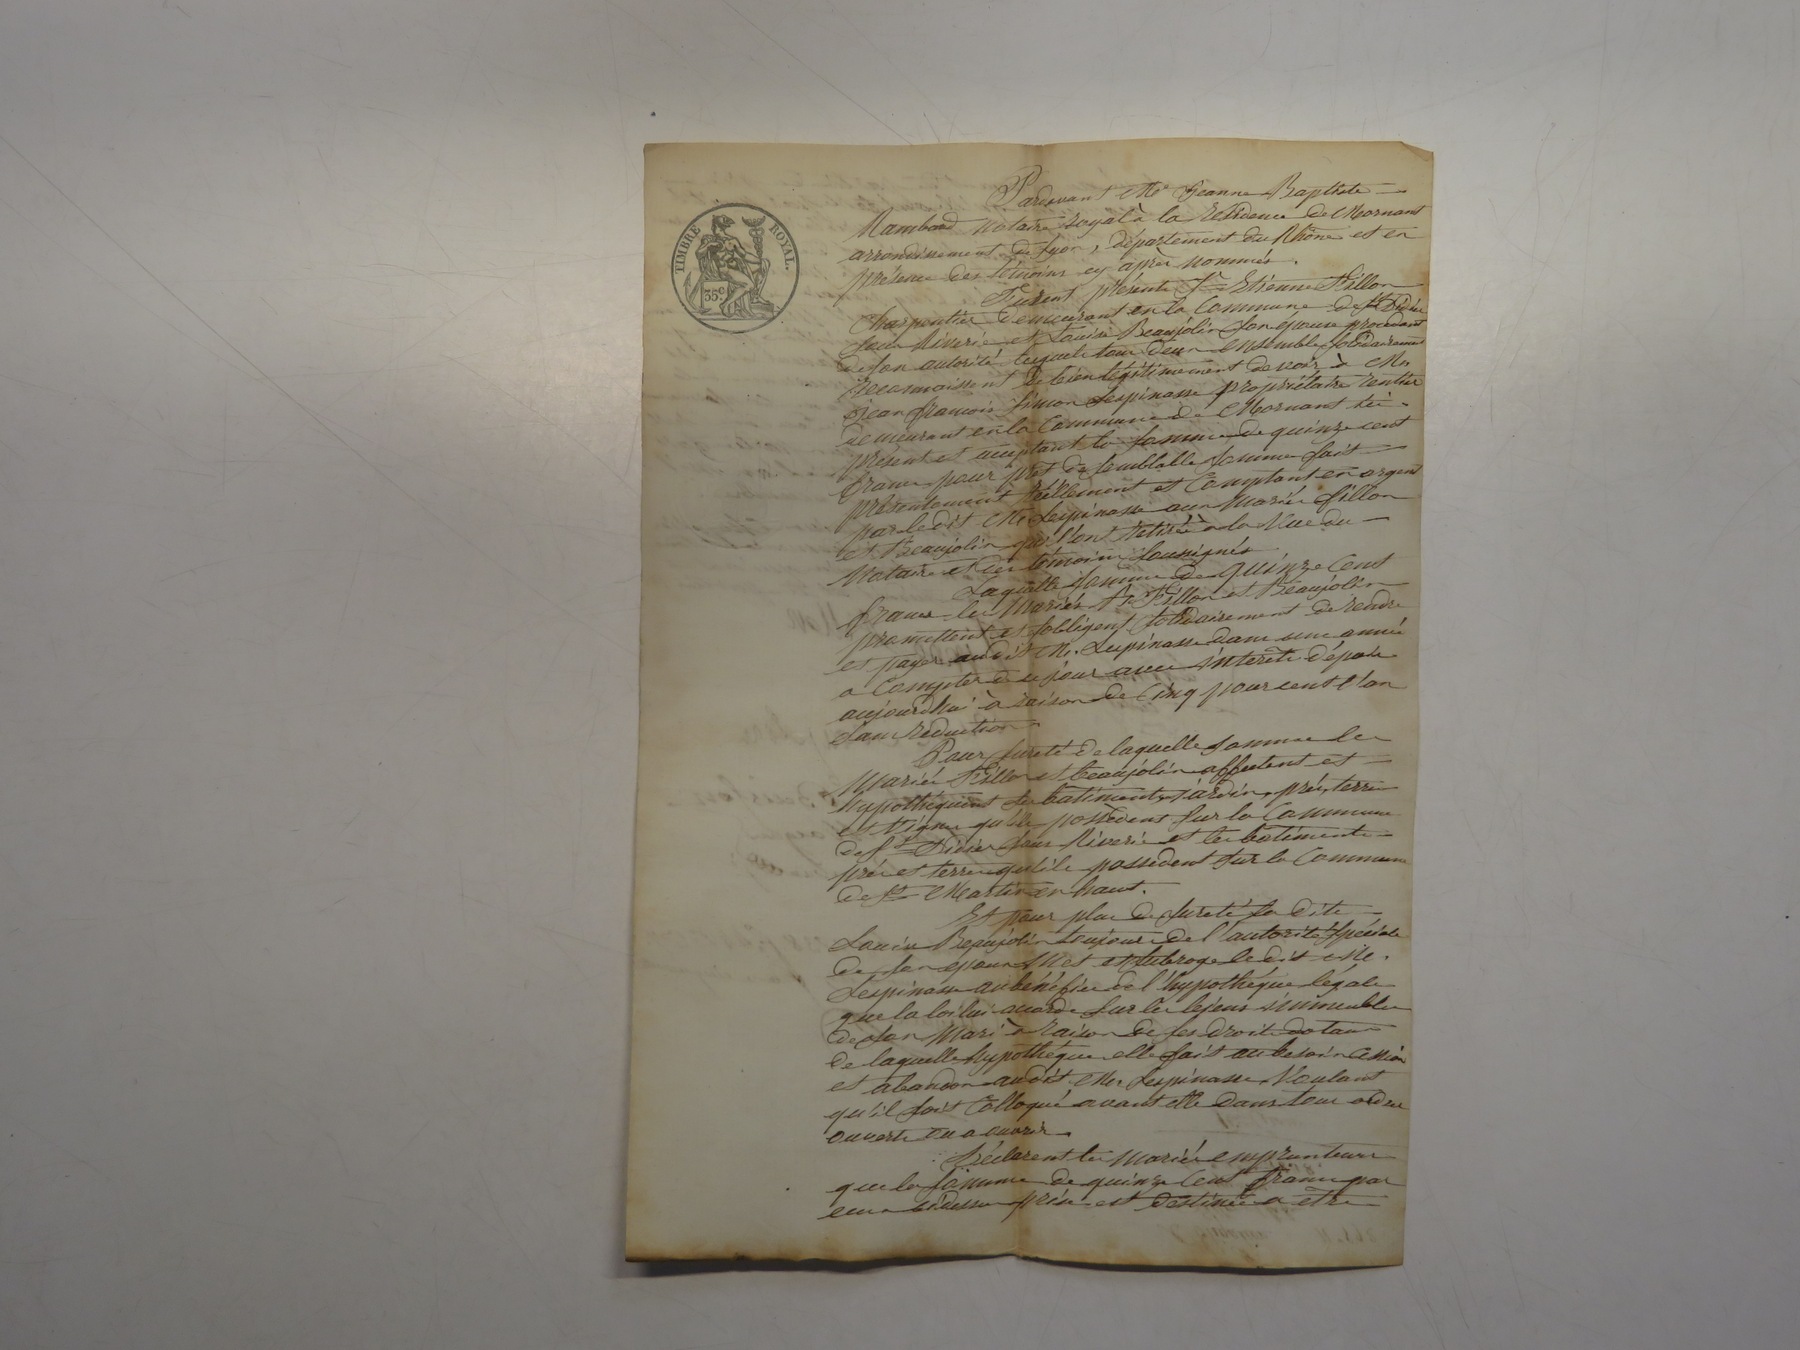 TIMBRE ROYAL.
35c
Pardevant Me Jeanne Baptiste
notaire royal à la résidence de Mornant
arrondissement de Lyon, département du Rhône et en
présence des témoins cy après nommés.
Furent présents Sr Etienne Fillon
Charpentier demeurant en la Commune de St Didier
sous Riverie et Louise Beaujolin son épouse procédant
de son autorité lesquels tous deux ensemble solidairement
reconnaissent de bien légitimement devoir à Mr
Jean françois Simon Lespinasse propriétaire rentier
demeurant en la Commune de Mornant ici
présent et acceptant la somme de quinze cent
francs pour prêt de semblable somme fait
présentement réellement et Comptant en argent
par le dit Mr Lespinasse aux Mariés fillon
et Beaujolin qui l'ont retirée à la Vue du
Notaire et des témoins soussignés
Laquelle somme de quinze Cent
francs les Mariés Fillon et Beaujolin
promettent et s'obligent solidairement de rendre
et payer audit Mr. Lespinasse dans une année
a Compter de ce jour avec intérêts dépuis
aujourdhui à raison de Cinq pour cent l'an
sans réduction.
Pour sureté de laquelle somme les
Mariés Fillon et beaujolin affectent et
hypothéquent les batiments, jardin, prés, terres
et Vignes qu'ils possèdent sur la Commune
de St Didier sous Riverie et les batiments
prés et terres qu'ils possèdent sur la Commune
de St Martin en haut.
Et pour plus de sureté la dite
Louise Beaujolin toujours de l'autorité spéciale
de son époux Met et subroge le dit Mr.
Lespinasse au bénéfice de l'hypothéque légale
que la loi lui accorde sur les biens immeubles
de son Mari à raison de ses droits dotaux
de laquelle hypothéque elle fait au besoin Cession
et abandon audit Mr Lespinasse Voulant
qu'il soit Colloqué avant elle dans tous ordres
ouverts ou a ouvrir.
Déclarent les Mariés emprunteurs
que la somme de quinze Cent francs par
eux cidessus prise est destinée a être